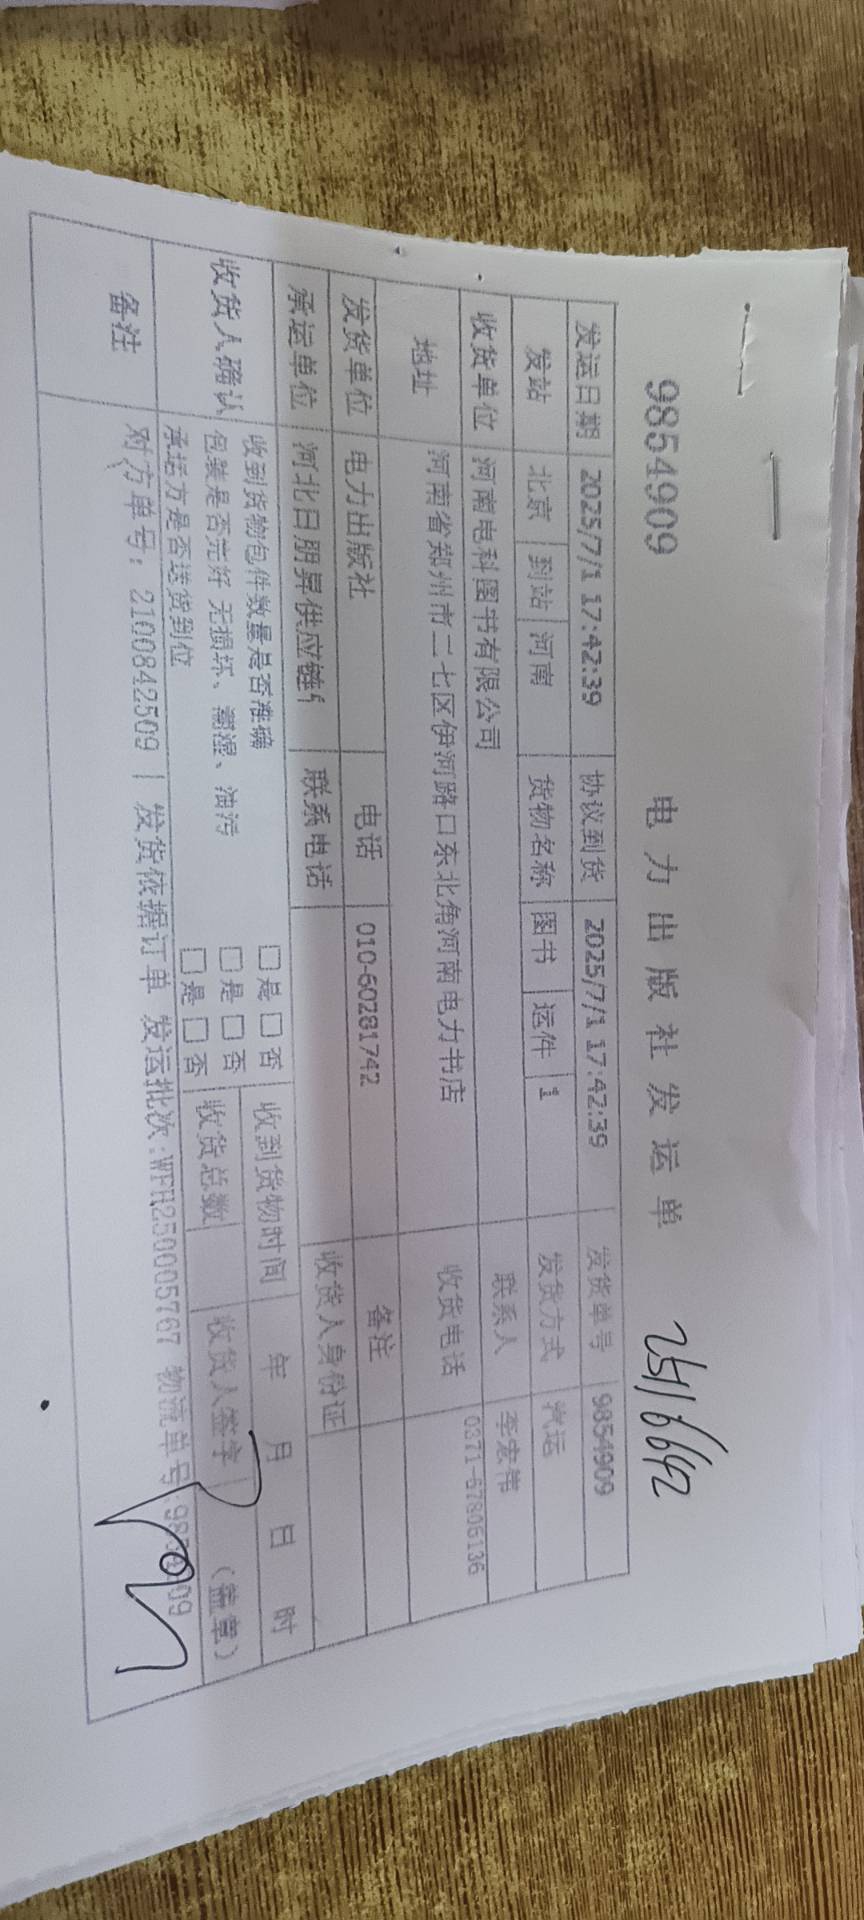 9854909 电力出版社发运单 25116642
发运日期 2025/7/1 17:42:39 协议到货 2025/7/1 17:42:39 发货单号 9854909
发站 北京 到站 河南 货物名称 图书 运件 1 发货方式 汽运
收货单位 河南电科图书有限公司 联系人 李宏伟
地址 河南省郑州市二七区伊河路口东北角河南电力书店 收货电话 0371-67806136
发货单位 电力出版社 电话 010-60281742 备注
承运单位 河北日朋昇供应链 联系电话 收货人身份证
收货人确认 收到货物包件数量是否准确 □是□否 收到货物时间 年 月 日 时
包装是否完好 无损坏、潮湿、油污 □是□否 收货总数 收货人签字 (盖章)
承运方是否送货到位 □是□否
备注 对方单号：2100842509 | 发货依据订单 发运批次:WFH250005767 物流单号:9854909